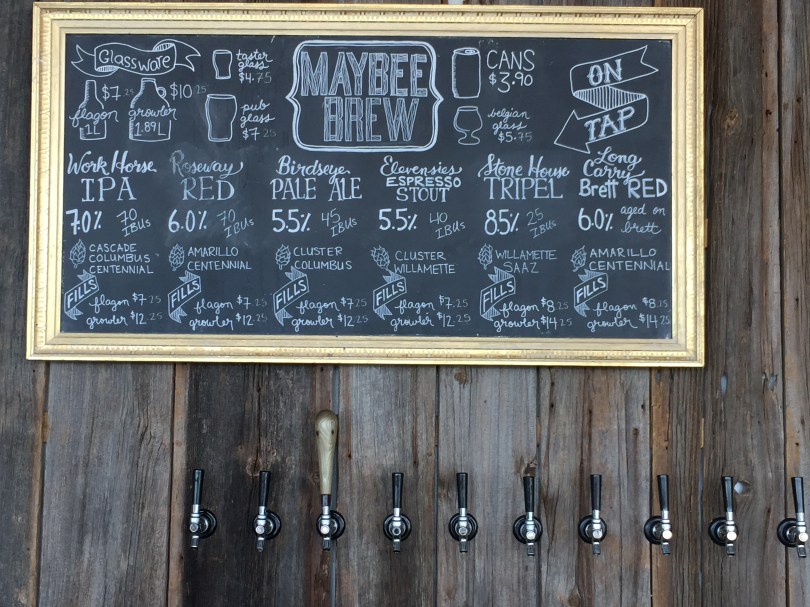 Glassware
$7.25
flagon
1L
$10.25
growler
1.89L
taster
glass
$4.75
pub
glass
$7.25
MAYBEE
BREW
CANS
$3.90
belgian
glass
$5.75
ON
TAP
Work Horse
IPA
7.0% 70 IBUs
CASCADE
COLUMBUS
CENTENNIAL
FILLS
flagon $7.25
growler $12.25
Roseway
RED
6.0% 70 IBUs
AMARILLO
CENTENNIAL
FILLS
flagon $7.25
growler $12.25
Birdseye
PALE ALE
5.5% 45 IBUs
CLUSTER
COLUMBUS
FILLS
flagon $7.25
growler $12.25
Elevensies
ESPRESSO
STOUT
5.5% 40 IBUs
CLUSTER
WILLAMETTE
FILLS
flagon $7.25
growler $12.25
Stone House
TRIPEL
8.5% 25 IBUs
WILLAMETTE
SAAZ
FILLS
flagon $8.25
growler $14.25
Long
Carry
Brett RED
6.0% aged on
brett
AMARILLO
CENTENNIAL
FILLS
flagon $8.25
growler $14.25